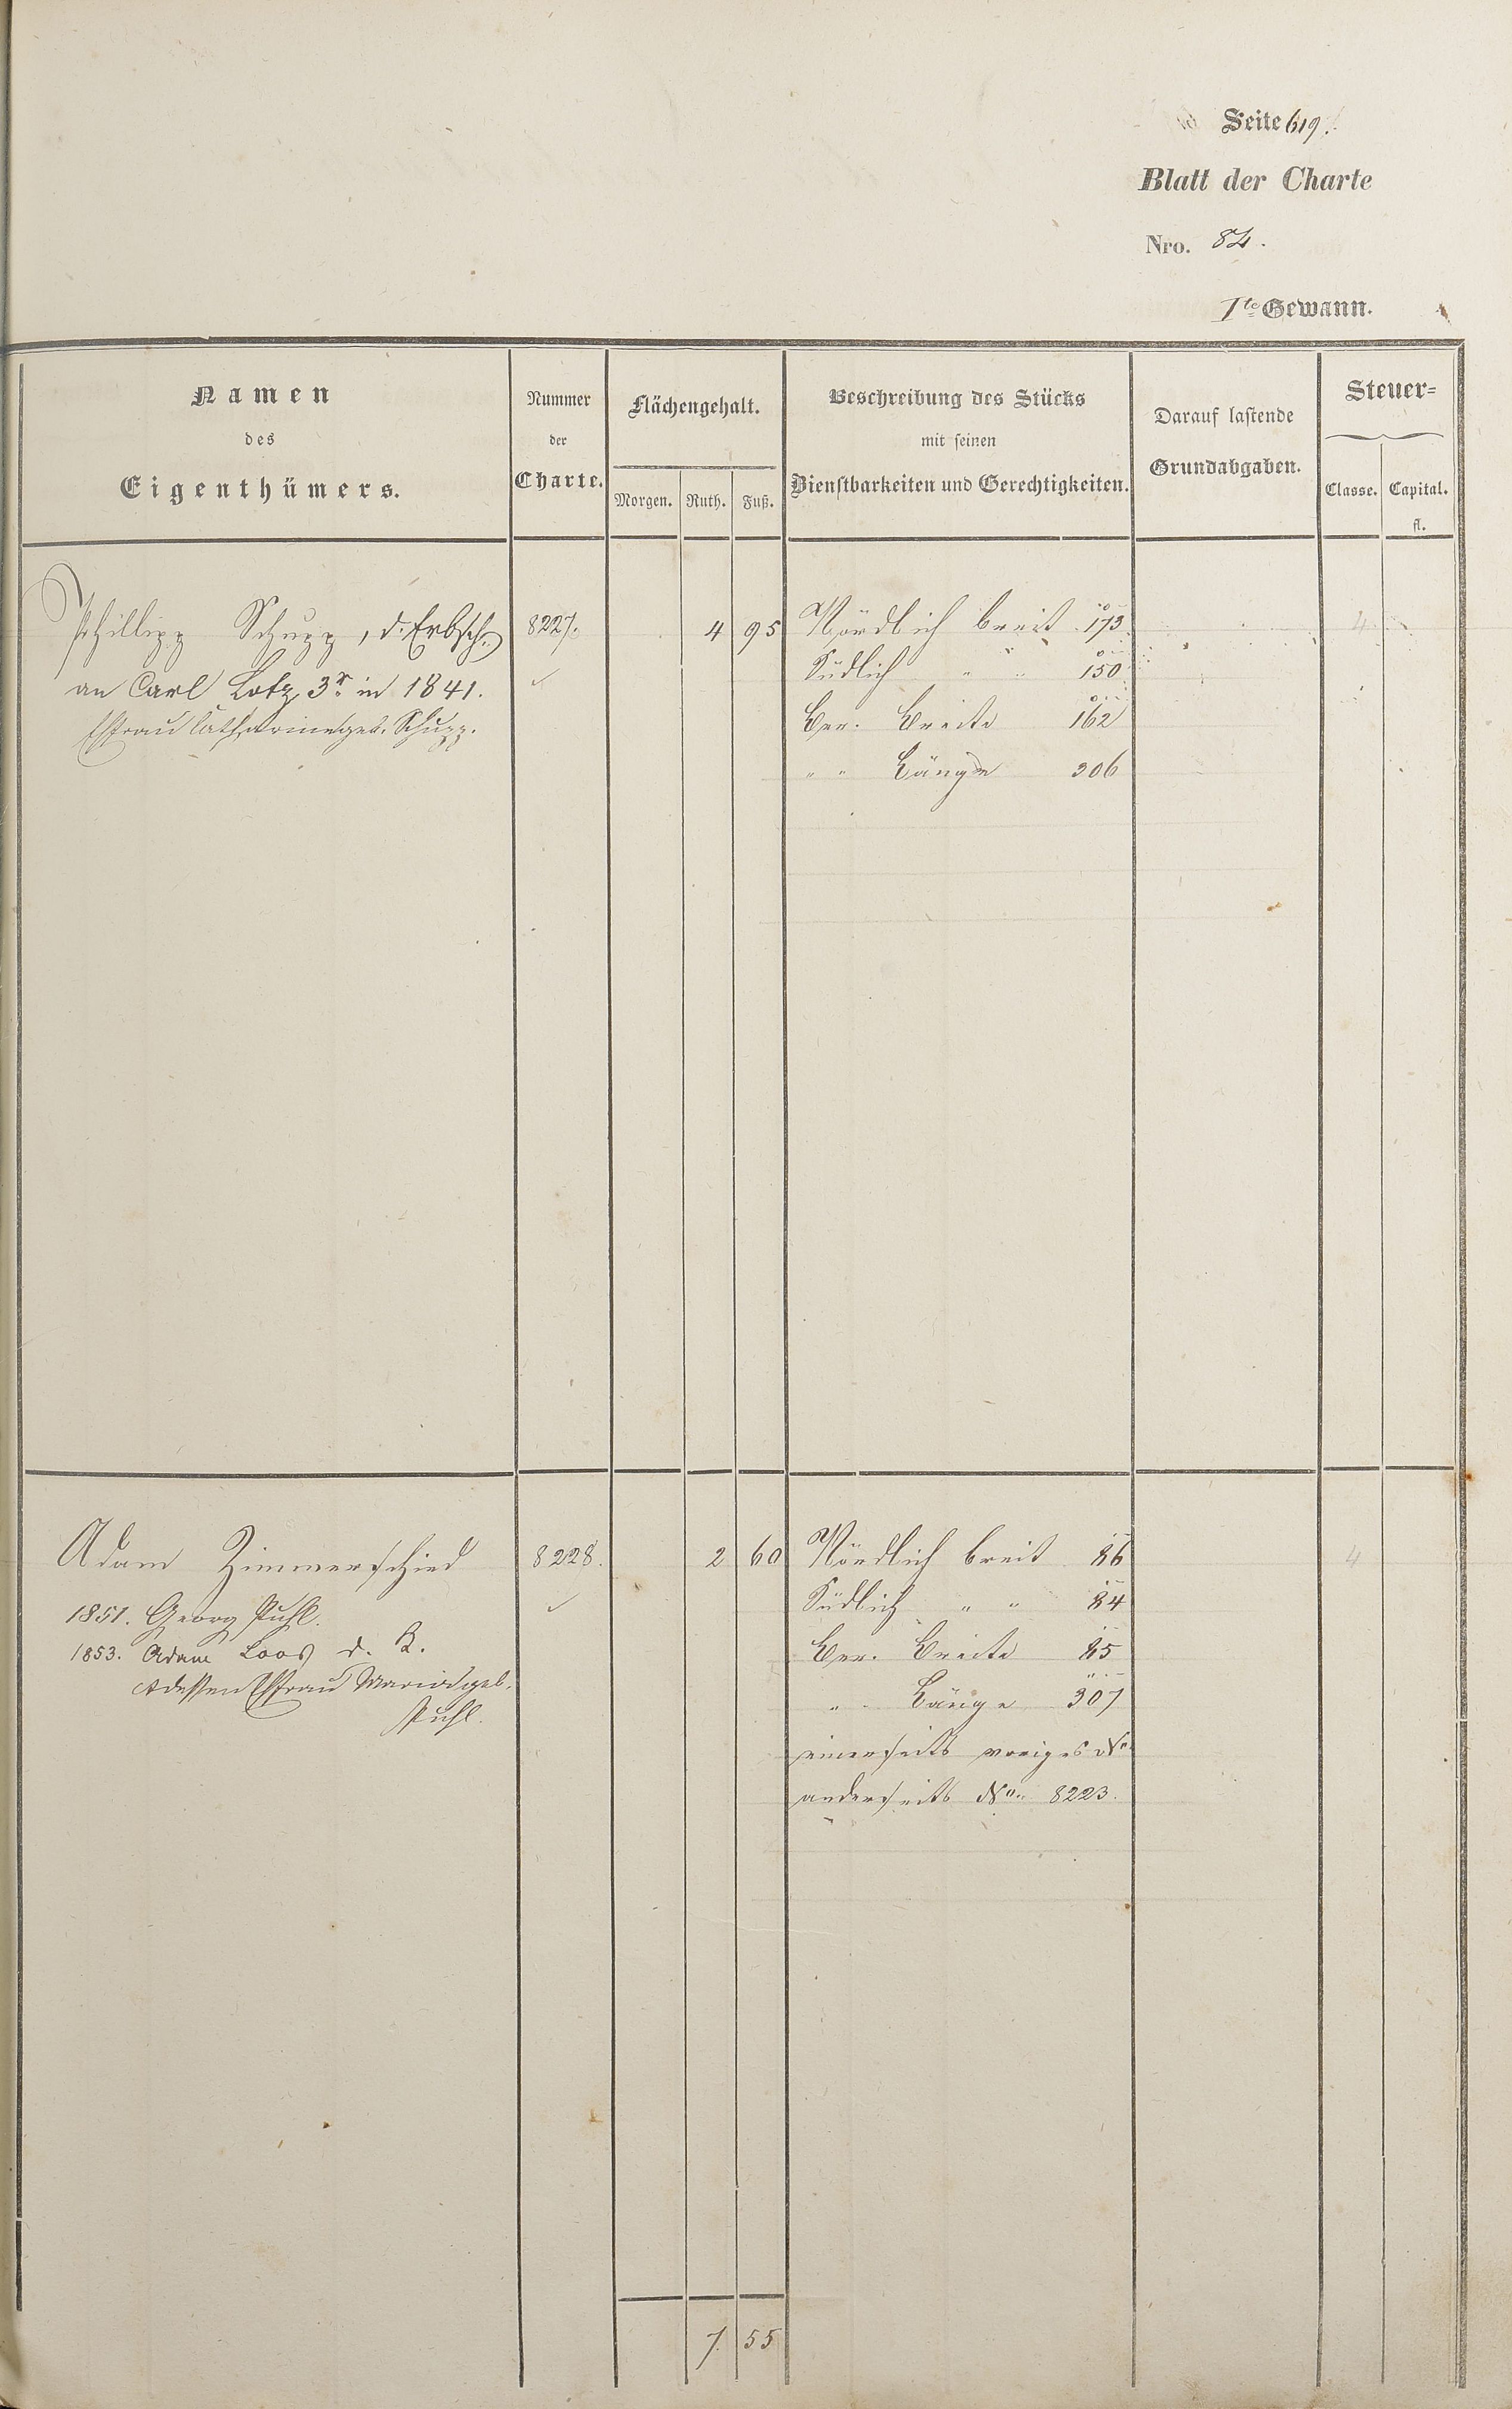 Seite 619.
Blatt der Charte
Nro. 84.
1te Gewann.
Namen
des
Eigenthümers.
Nummer
der
Charte.
Flächengehalt.
Morgen. Ruth. Fuß.
Beschreibung des Stücks
mit seinen
Dienstbarkeiten und Gerechtigkeiten.
Darauf lastende
Grundabgaben.
Steuer=
Classe. Capital.
fl.
Phillipp Schupp, d. Erbsch. 8227. 4 95 Nördlich breit 173 4
an Carl Lotz 3r in 1841. Südlich " " 150
Ehfrau Catharine geb. Schupp. Ber. Breite 162
" " Länge 306
Adam Zimmerschied 8228. 2 60 Nördlich breit 86 4
1851. Georg Puhl. Südlich " " 84
1853. Adam Loos d. R. Ber. Breite 85
dessen Ehfrau Maria geb. " Länge 307
Puhl.
einerseits voriges No
anderseits No. 8223.
7. 55